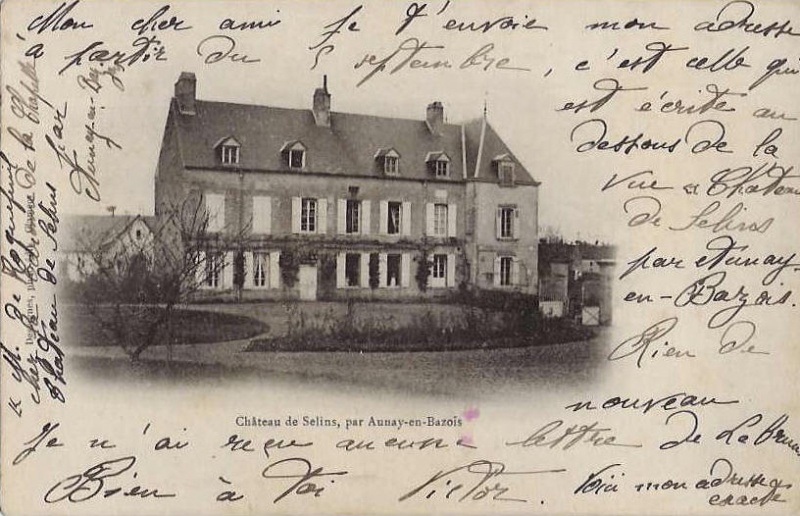 Mon cher ami je t'envoie mon adresse
à partir du 5 septembre, c'est celle qui
est écrite au
dessous de la
vue « Château
de Selins
par Aunay-
en-Bazois.
Rien de
nouveau
Je n'ai reçu aucune lettre de Labru
Bien à toi Victor. Voici mon adresse
exacte
« M. de Roquefeuil
chez de la Chapelle
Château de Selins par
Aunay-en-Baz
Château de Selins, par Aunay-en-Bazois